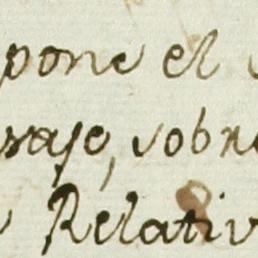 pone el
saje, sobre
Relativ